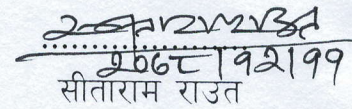 २०६८।१२।११
सीताराम राउत